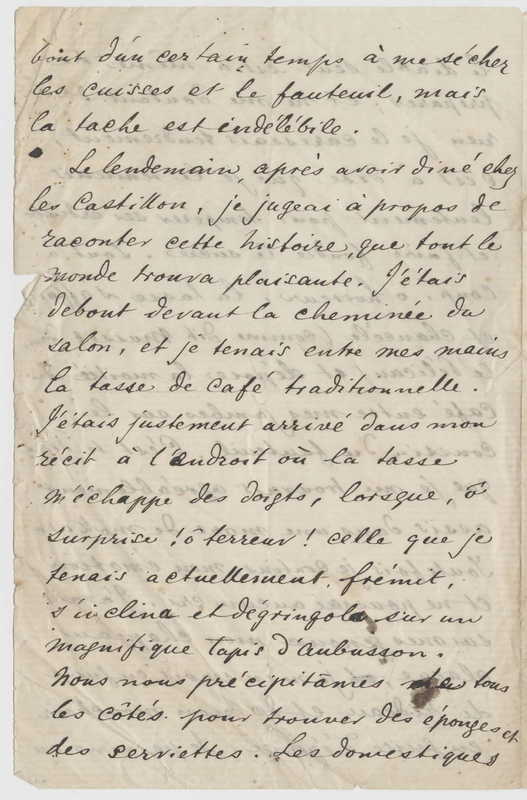 bout d'un certain temps à me sécher
les cuisses et le fauteuil, mais
la tache est indélébile.
Le lendemain, après avoir diné chez
les Castillon, je jugeai à propos de
raconter cette histoire, que tout le
monde trouva plaisante. J'étais
debout devant la cheminée du
salon, et je tenais entre mes mains
la tasse de café traditionnelle.
J'étais justement arrivé dans mon
récit à l'endroit où la tasse
m'échappe des doigts, lorsque, ô
surprise ! ô terreur ! celle que je
tenais actuellement, frémit,
s'inclina et dégringola sur un
magnifique tapis d'Aubusson.
Nous nous précipitâmes de tous
les côtés pour trouver des éponges et
des serviettes. Les domestiques